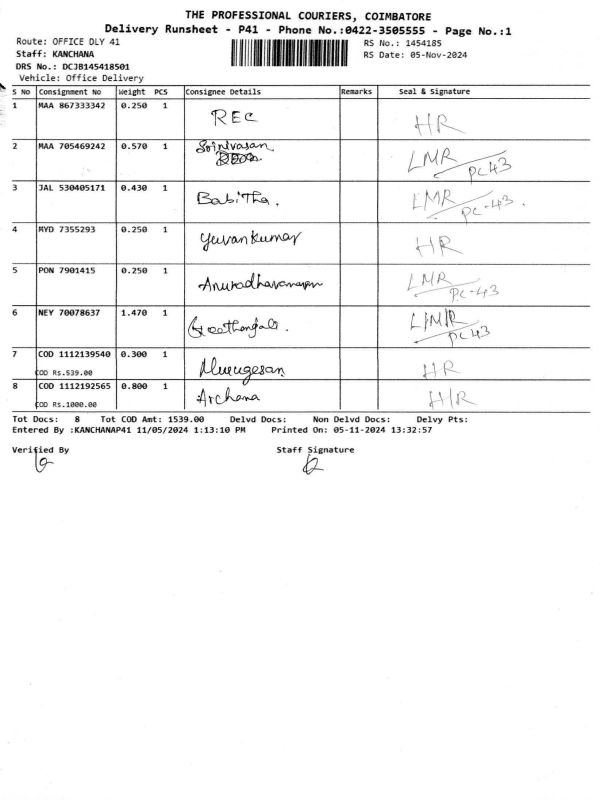 THE PROFESSIONAL COURIERS, COIMBATORE
Delivery Runsheet - P41 - Phone No.:0422-3505555 - Page No.:1
Route: OFFICE DLY 41
Staff: KANCHANA
DRS No.: DCJB145418501
Vehicle: Office Delivery
RS No.: 1454185
RS Date: 05-Nov-2024
S No Consignment No Weight PCS Consignee Details Remarks Seal & Signature
1 MAA 867333342 0.250 1 REC HR
2 MAA 705469242 0.570 1 Srinivasan LMR PC43
3 JAL 530405171 0.430 1 Babitha. LMR PC-43.
4 MYD 7355293 0.250 1 Yuvankumar HR
5 PON 7901415 0.250 1 LMR PC-43
6 NEY 70078637 1.470 1 LMR PC43
7 COD 1112139540 0.300 1 Murugesan HR
COD Rs.539.00
8 COD 1112192565 0.800 1 Archana HR
COD Rs.1000.00
Tot Docs: 8 Tot COD Amt: 1539.00 Delvd Docs: Non Delvd Docs: Delvy Pts:
Entered By :KANCHANAP41 11/05/2024 1:13:10 PM Printed On: 05-11-2024 13:32:57
Verified By Staff Signature